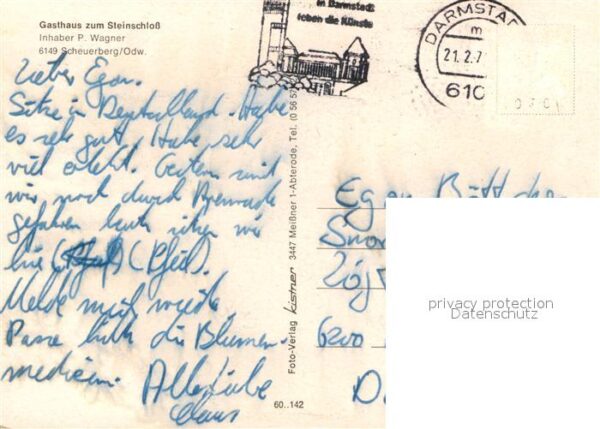 Gasthaus zum Steinschloß
Inhaber P. Wagner
6149 Scheuerberg/Odw.
in Darmstadt
leben die Künste
DARMSTADT
m
21.2.7
610
Lieber Egon.
Sitze in Deutschland. Habe
es sehr gut, Habe sehr
viel erlebt. Gestern sind
wir noch durch
gefahren heute sitzen wir
hier (Pfeil).
Melde mich wieder.
Passe bitte die Blumen
medizin. Alles Liebe
Claus
Foto-Verlag kistner 3447 Meißner 1-Abterode, Tel. (0 56 5
60..142
Egon
6200
D
privacy protection
Datenschutz